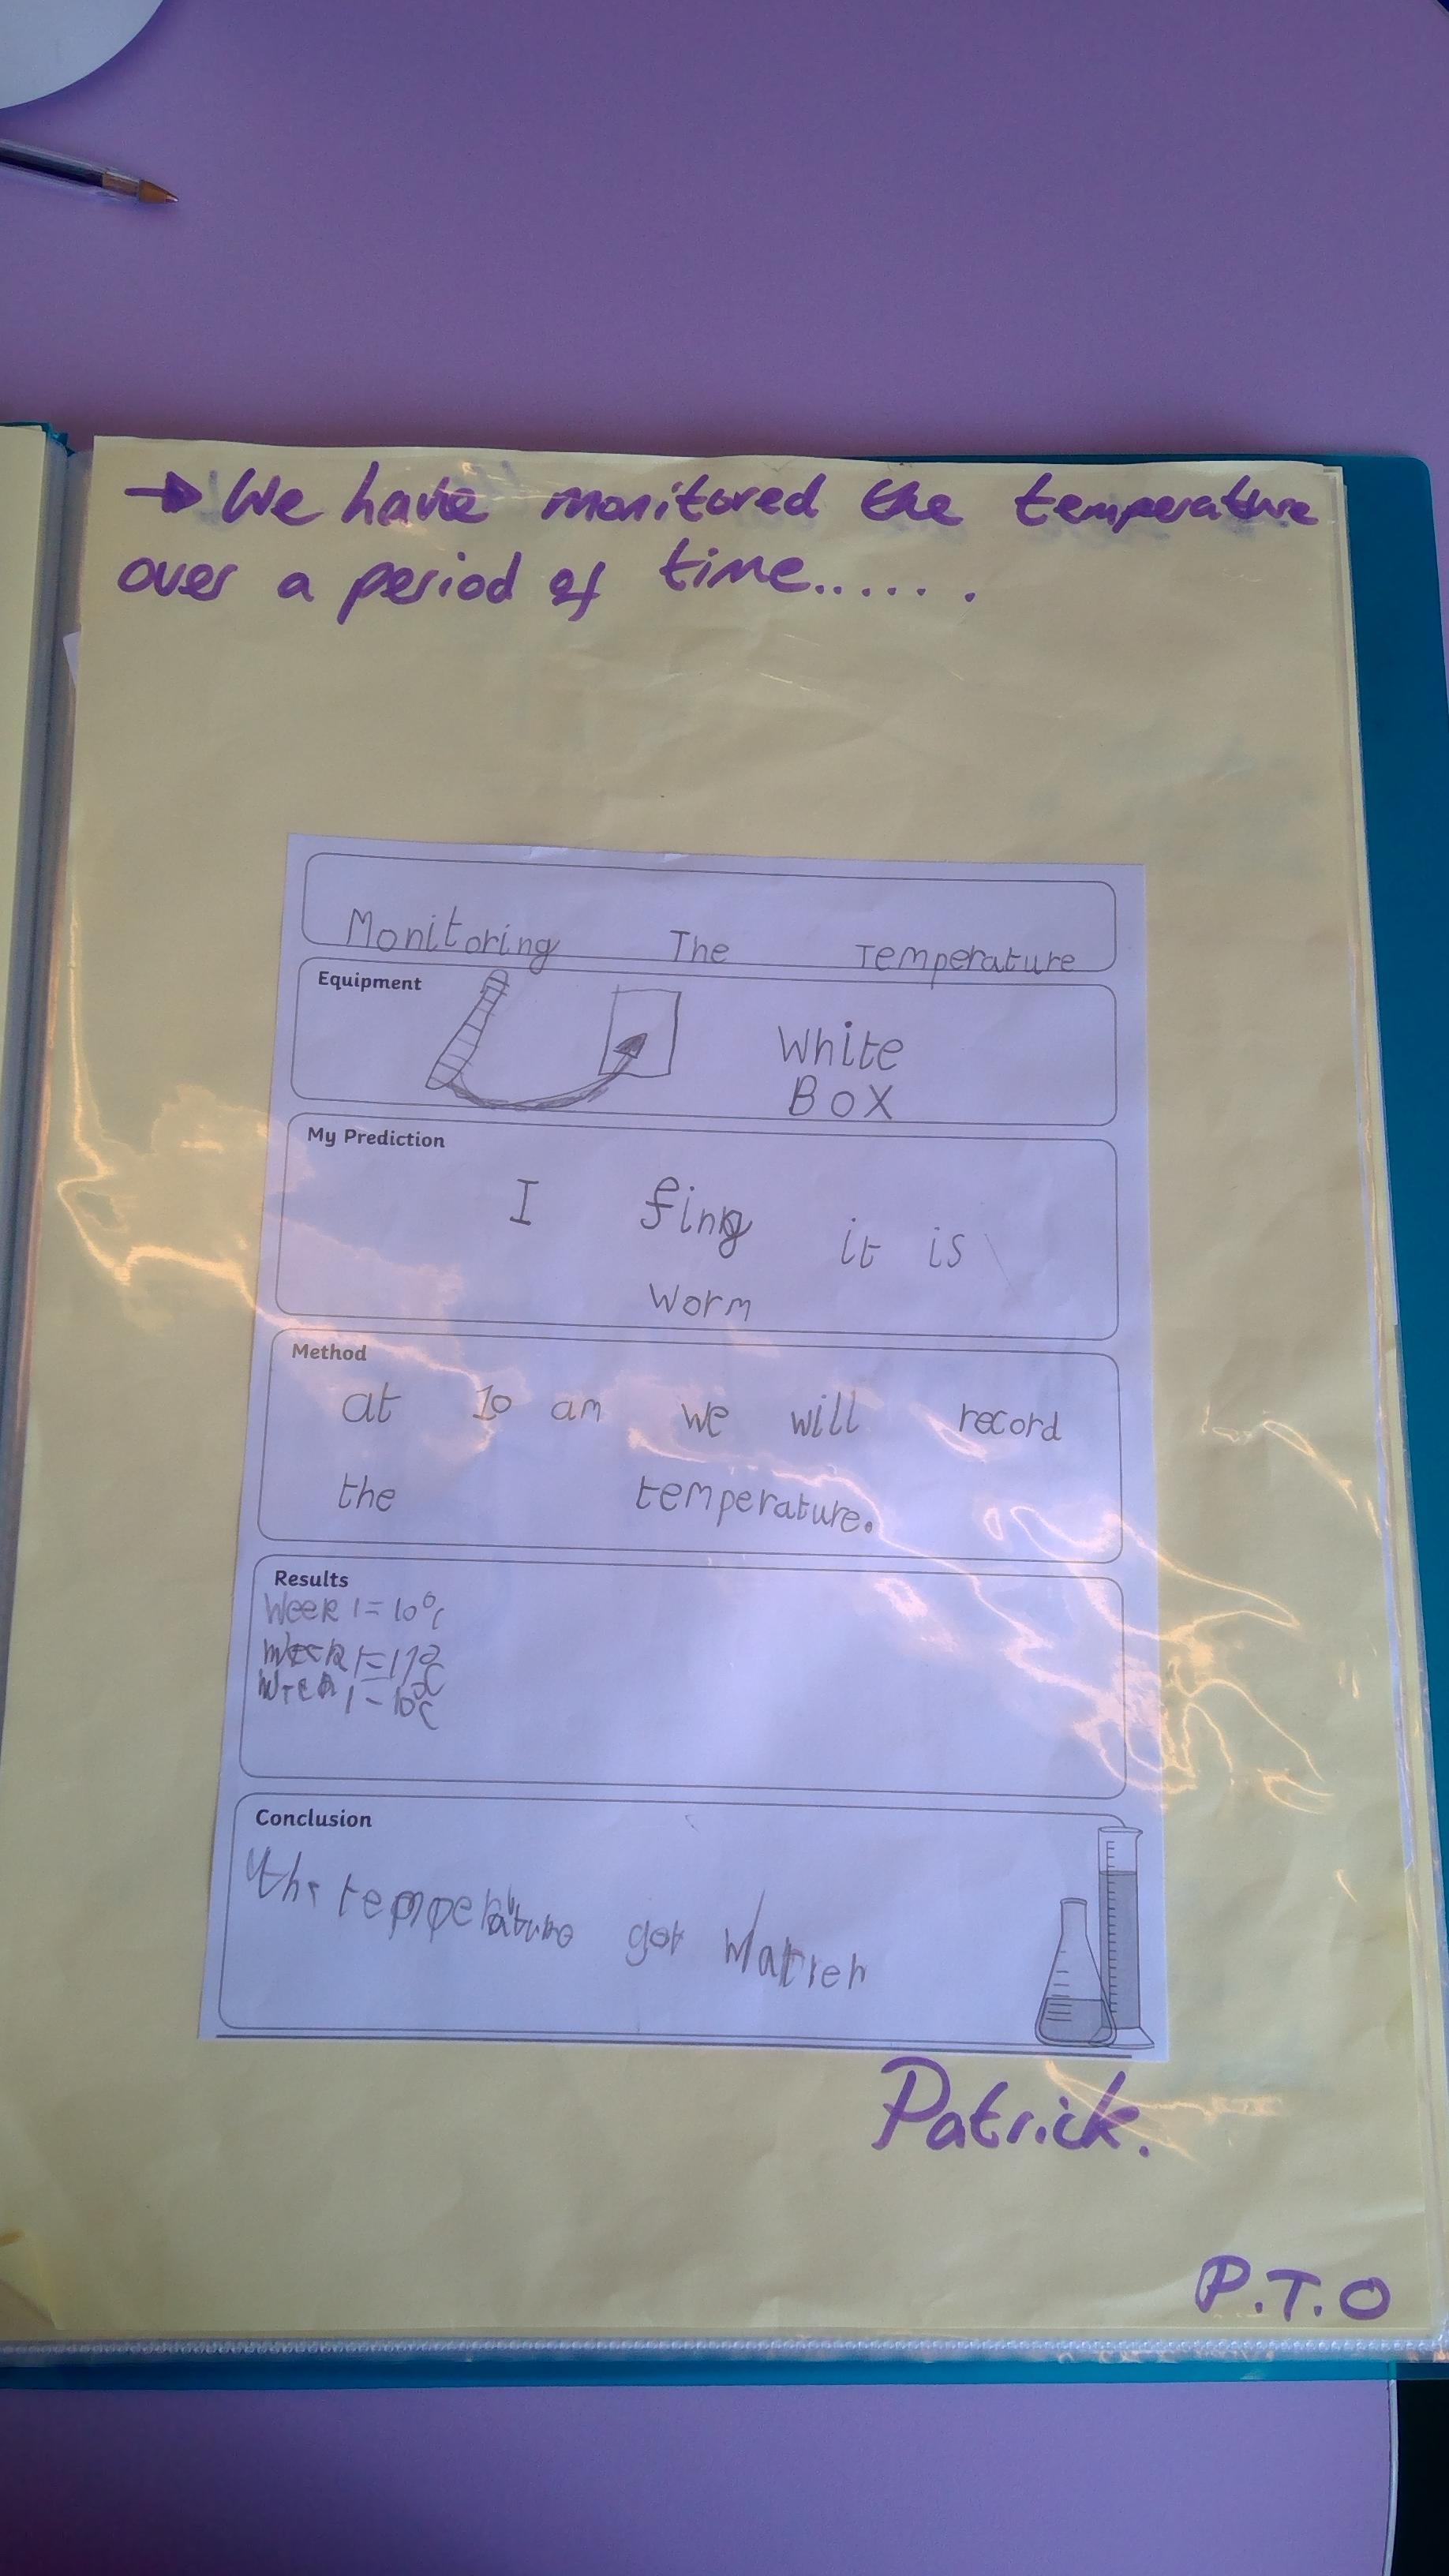 → We have monitored the temperature
over a period of time......
Monitoring The Temperature
Equipment
White
Box
My Prediction
I fing it is
worm
Method
at 10 am we will record
the temperature.
Results
Week 1 = 10°c
Week 1 = 17°c
Week 1 - 10°c
Conclusion
the temperature got
Patrick.
P.T.O